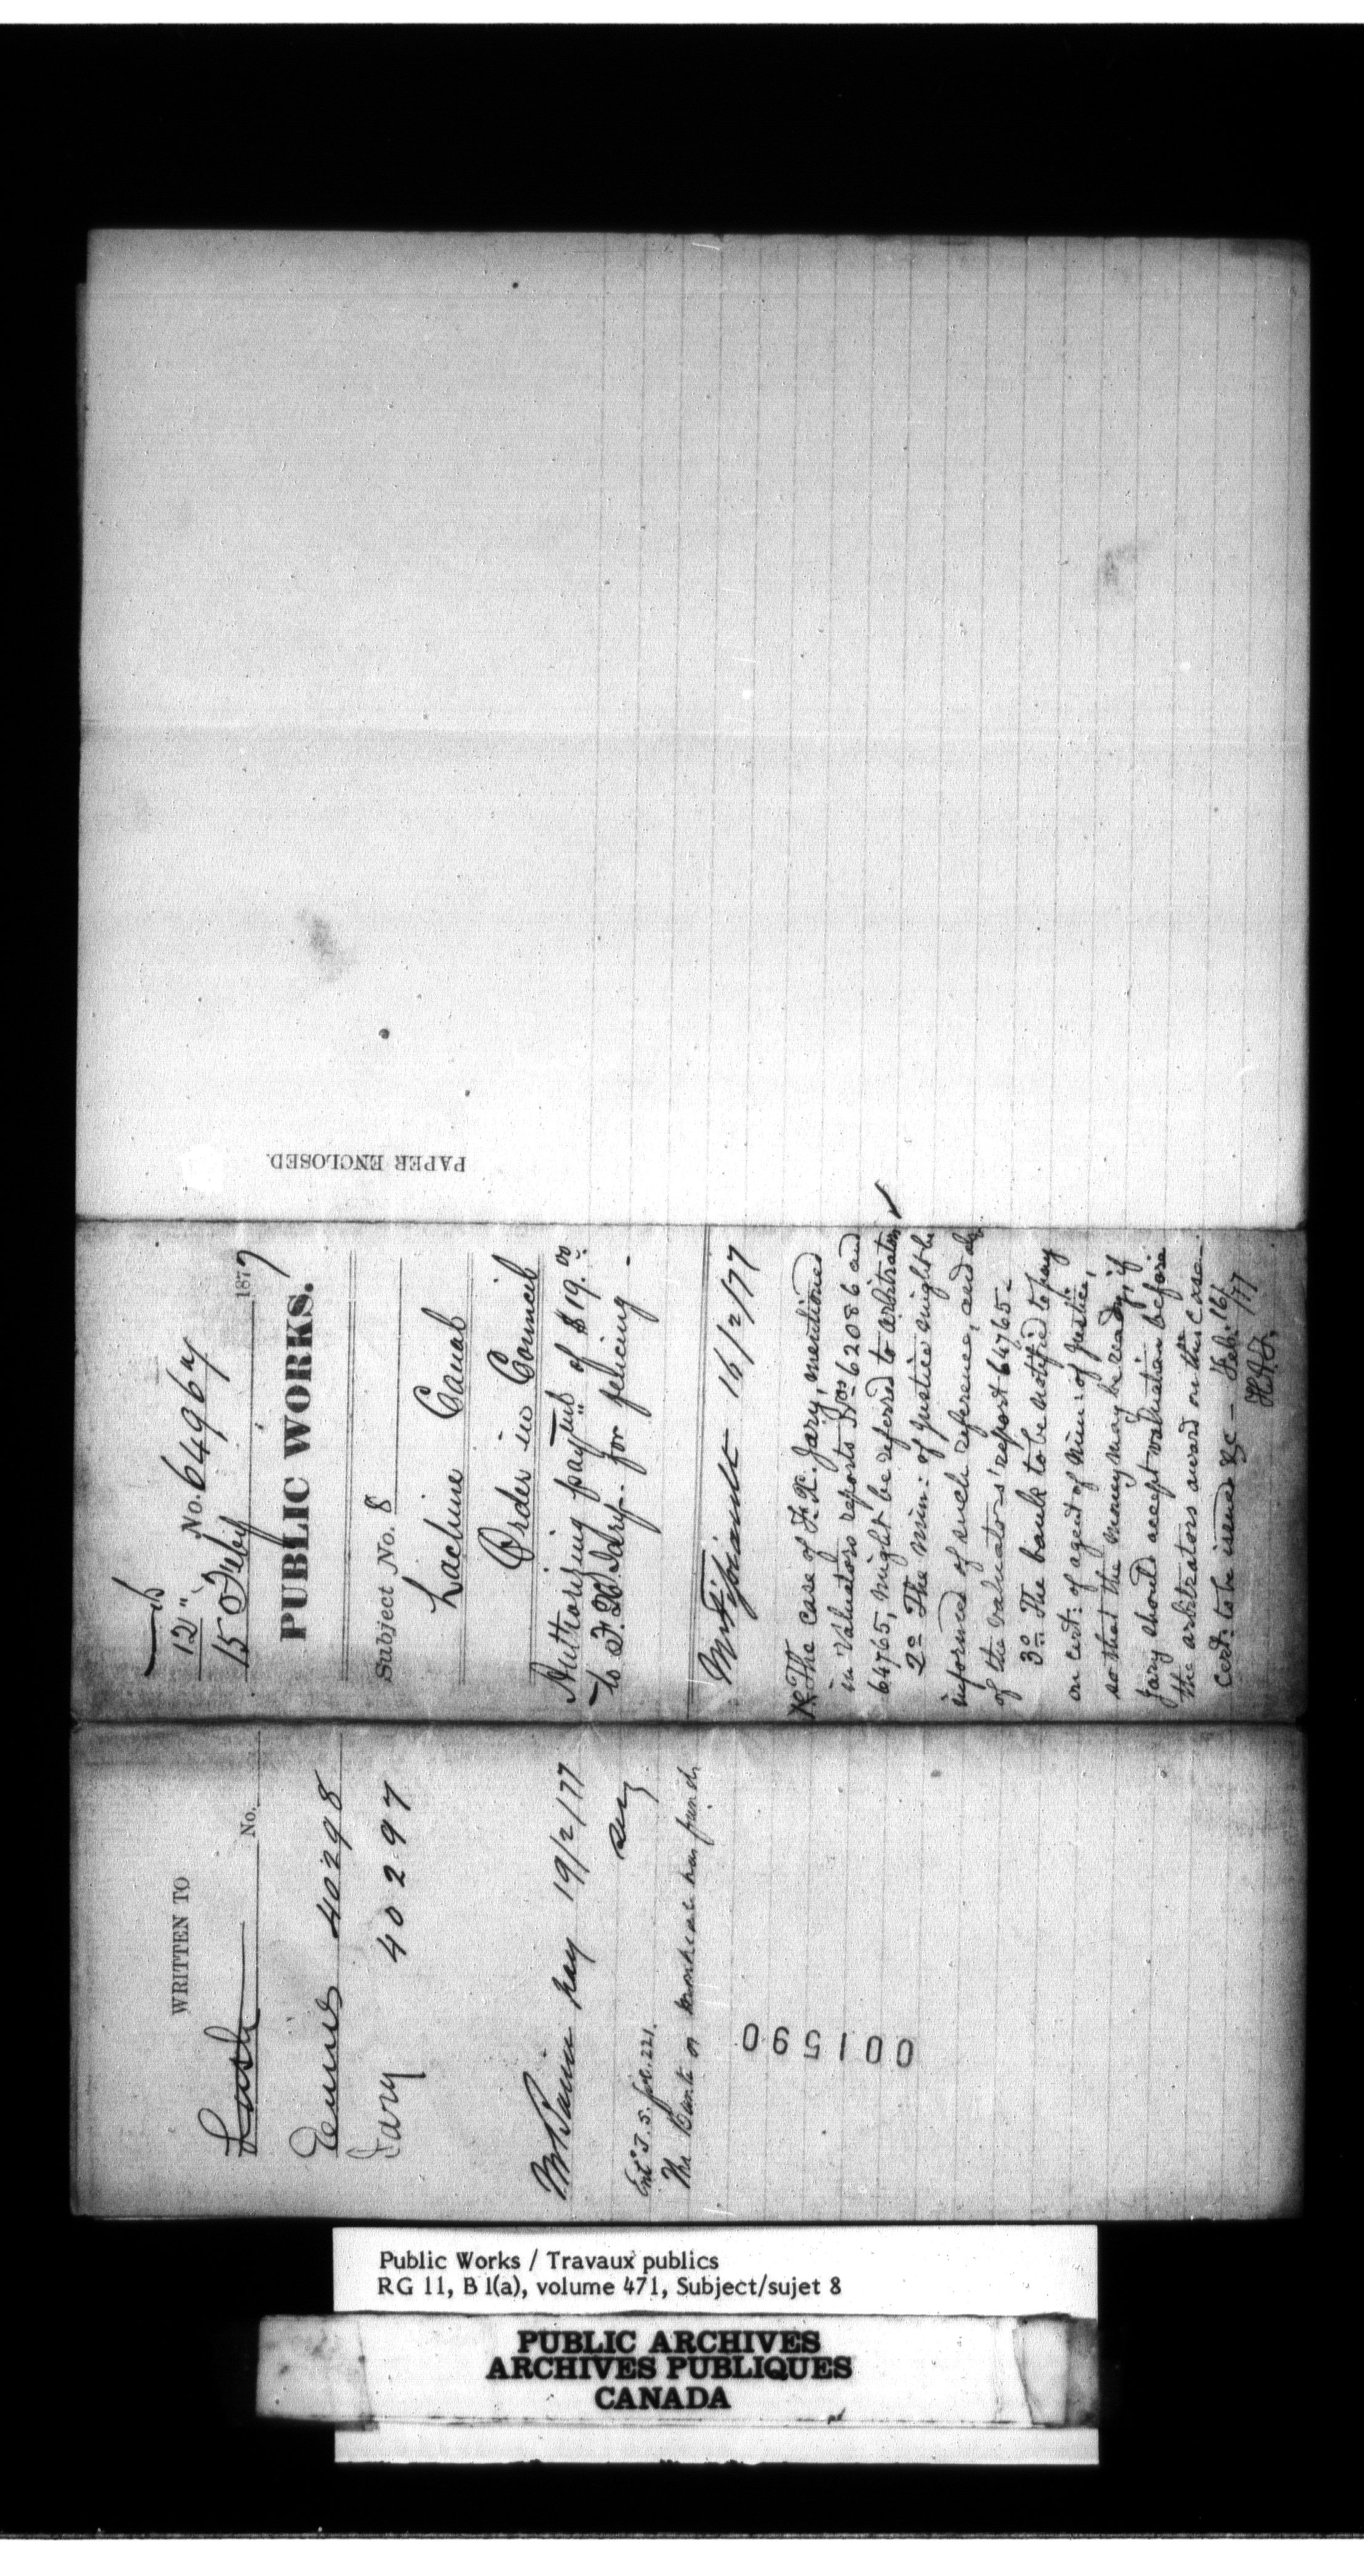 12"
No. 64967
15 Feby 1877
PUBLIC WORKS.
Subject No. 8
Lachine Canal
Order in Council
Authorizing paymt of $19.00
to F. X. Jary. for fencing
16/2/77
The case of F. X. Jary, mentioned
in Valuators reports Nos 62086 and
64765, might be referred to arbitrators
2o The Min: of Justice might be
informed of such reference, and also
of the valuators' report 64765-
3o The bank to be notified to pay
on cert: of agent of Min: of Justice,
so that the money may be ready, if
Jary should accept valuation before
the arbitrators award on this case.
Cert: to be issued &c - Feb. 16/77
PAPER ENCLOSED.
WRITTEN TO
No.
Lash
40298
Jary 40297
19/2/77
Entd T. S. fol. 221.
The Bank of Montreal has funds
001590
Public Works / Travaux publics
RG 11, B 1(a), volume 471, Subject/sujet 8
PUBLIC ARCHIVES
ARCHIVES PUBLIQUES
CANADA